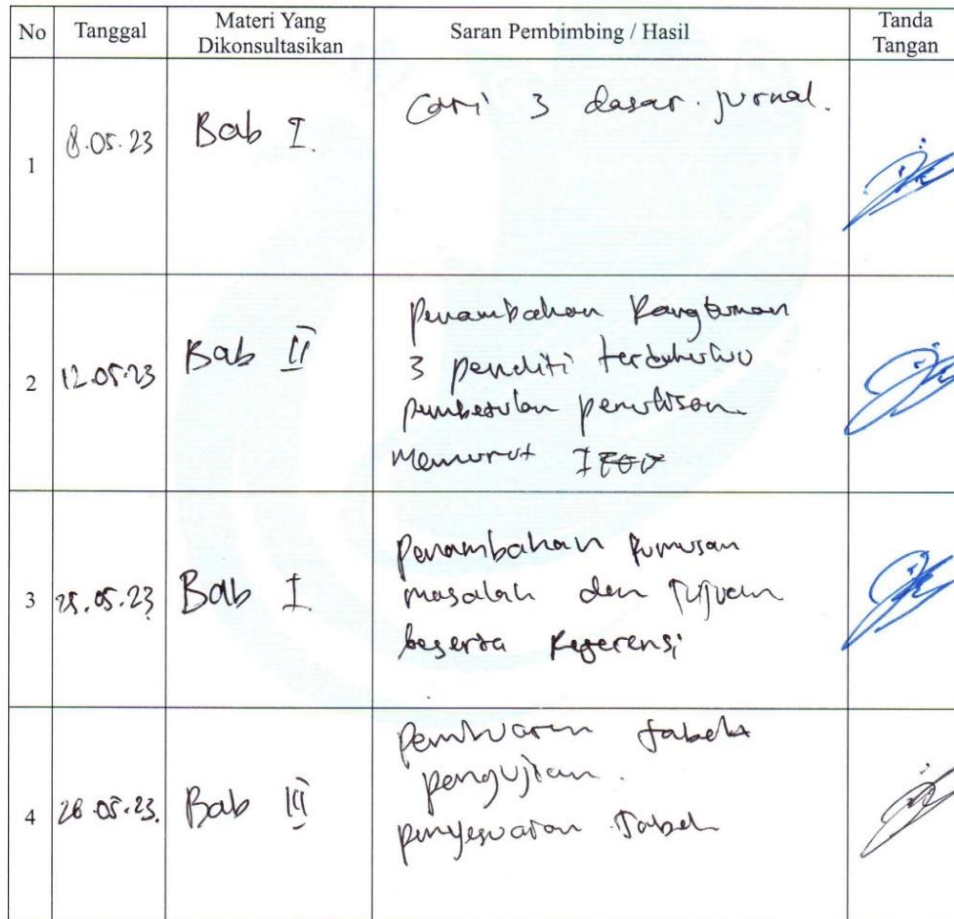 No Tanggal Materi Yang Dikonsultasikan Saran Pembimbing / Hasil Tanda Tangan
1 8.05.23 Bab I. Cari 3 dasar jurnal.
2 12.05.23 Bab II Penambahan Rangkuman
3 peneliti terdahulu
pembetulan penulisan
menurut
3 25.05.23 Bab I Penambahan rumusan
masalah dan Tujuan
beserta Referensi
4 26.05.23. Bab III Pembuatan tabel
pengujian.
penyesuaian Tabel